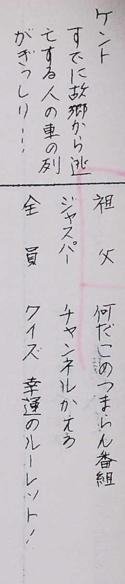 ケント
すでに故郷から逃
亡する人の車の列
がぎっしり…
祖父 何だこのつまらん番組
ジャスパー チャンネルかえろ
全員 クイズ 幸運のルーレット！